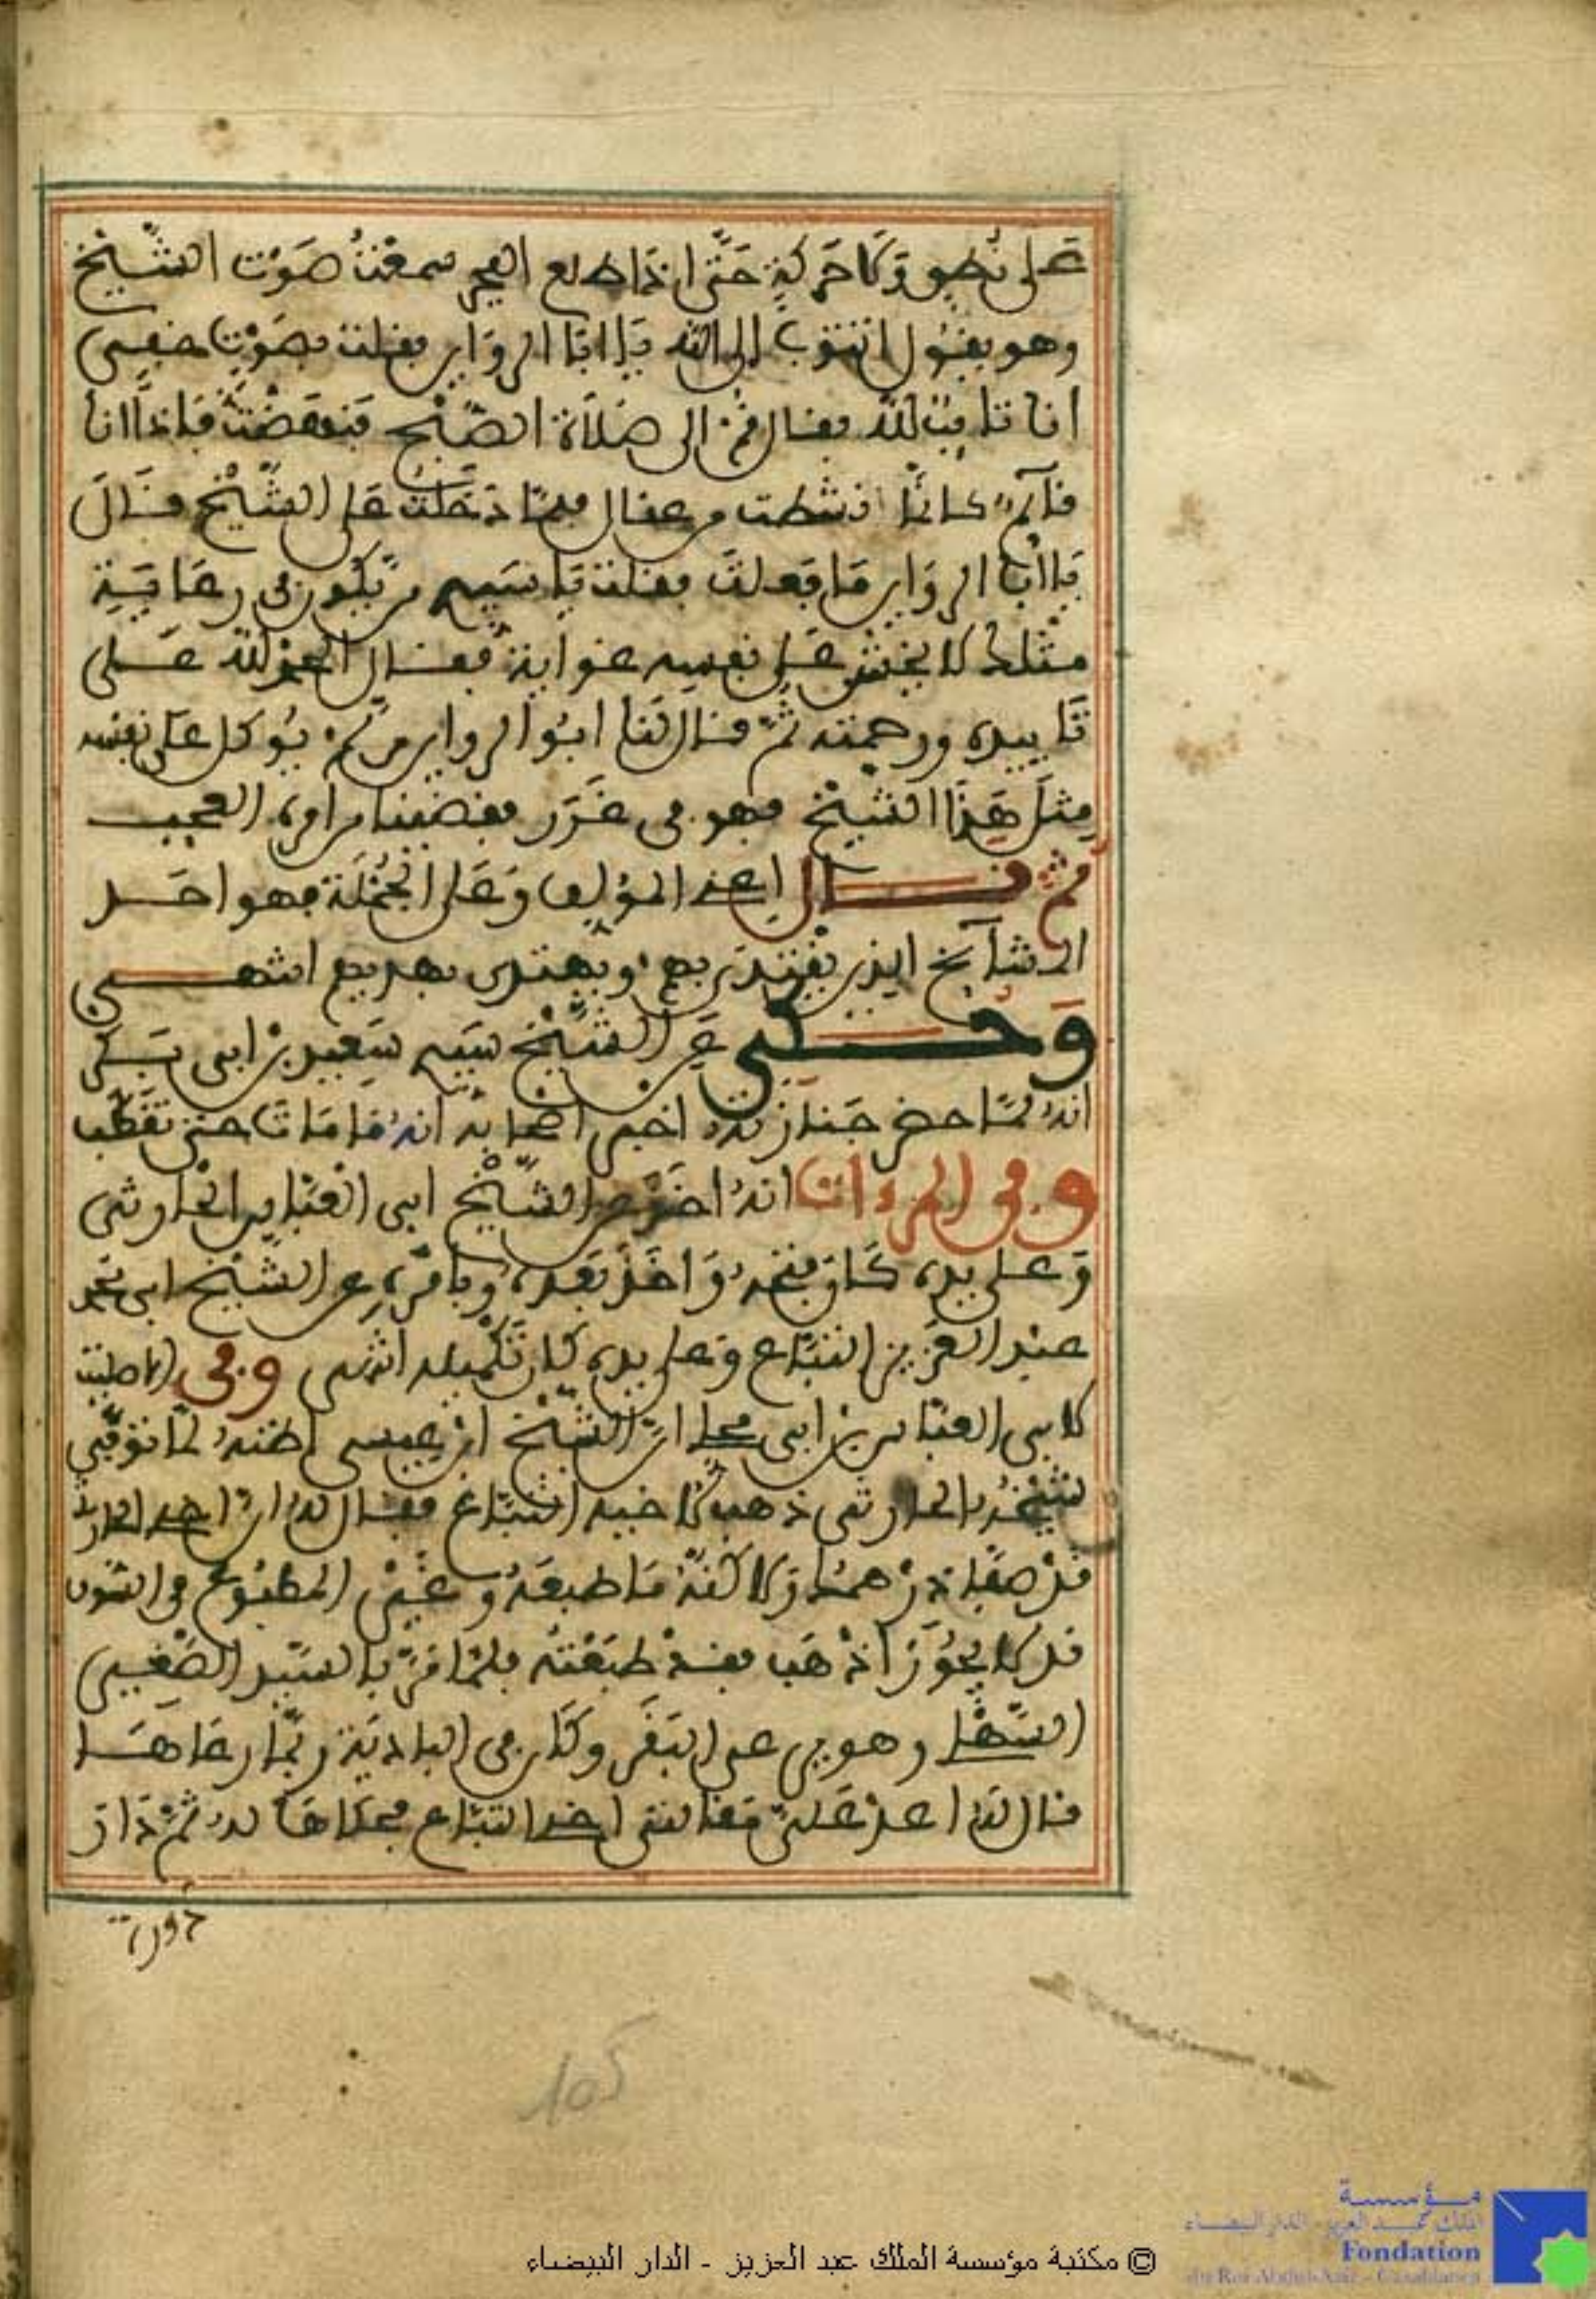 على نطق ولا حركة حتى اذا طلع الفجر سمعت صوت الشيخ
وهو يقول اتتوب الى الله يا ابا الرواين فقلت بصوت خفي
انا تائب لله فقال قم الى صلاة الصبح فنهضت فاذا انا
قائم كانما نشطت من عقال فلما دخلت على الشيخ قال
يا ابا الرواين ما فعلت فقلت يا سيدي من يكون في رعاية
مثلك لا يخش على نفسه غواية فقال الحمد لله على
تاييده ورحمته ثم قال لنا ابو الرواين من لم يوكل على نفسه
مثل هذا الشيخ فهو في غرر فقضينا من امره العجب
ثم قال اعني المؤلف وعلى الجملة فهو احد
المشايخ الذين يقتدى بهم ويهتدى بهديهم انتهى
وحكي عن الشيخ سيدي سعيد بن ابي بكر
انه لما حضر جنازته اخبر اصحابه انه ما مات حتى تقطب
وفي المرءات انه اخذ عن الشيخ ابي العباس الحارثي
وعلى يده كان فتحه واخذ بعده وبامره عن الشيخ ابي محمد
عبد العزيز التباع وعلى يده كان تكميله انتهى وفي الاصليت
لابي العباس بن ابي محلي ان الشيخ ابن عيسى اظنه لما توفي
شيخه الحارثي ذهب لاخيه التباع فقال له ان احمد الحارثي
قد صفا درهمك ولاكنه ما طبعه وغير المطبوع في السوق
قد لا يجوز اذهب فقد طبعته فلما مر بالسيد الصغير
السهلي وهو يرعى البقر وكان في البادية ربما رعاها
قال له اعد علي مقالتي اخي التباع فحكاها له ثم ذاق
ذوق
105
© مكتبة مؤسسة الملك عبد العزيز - الدار البيضاء
مؤسسة
الملك عبد العزيز - الدار البيضاء
Fondation
du Roi Abdul-Aziz - Casablanca